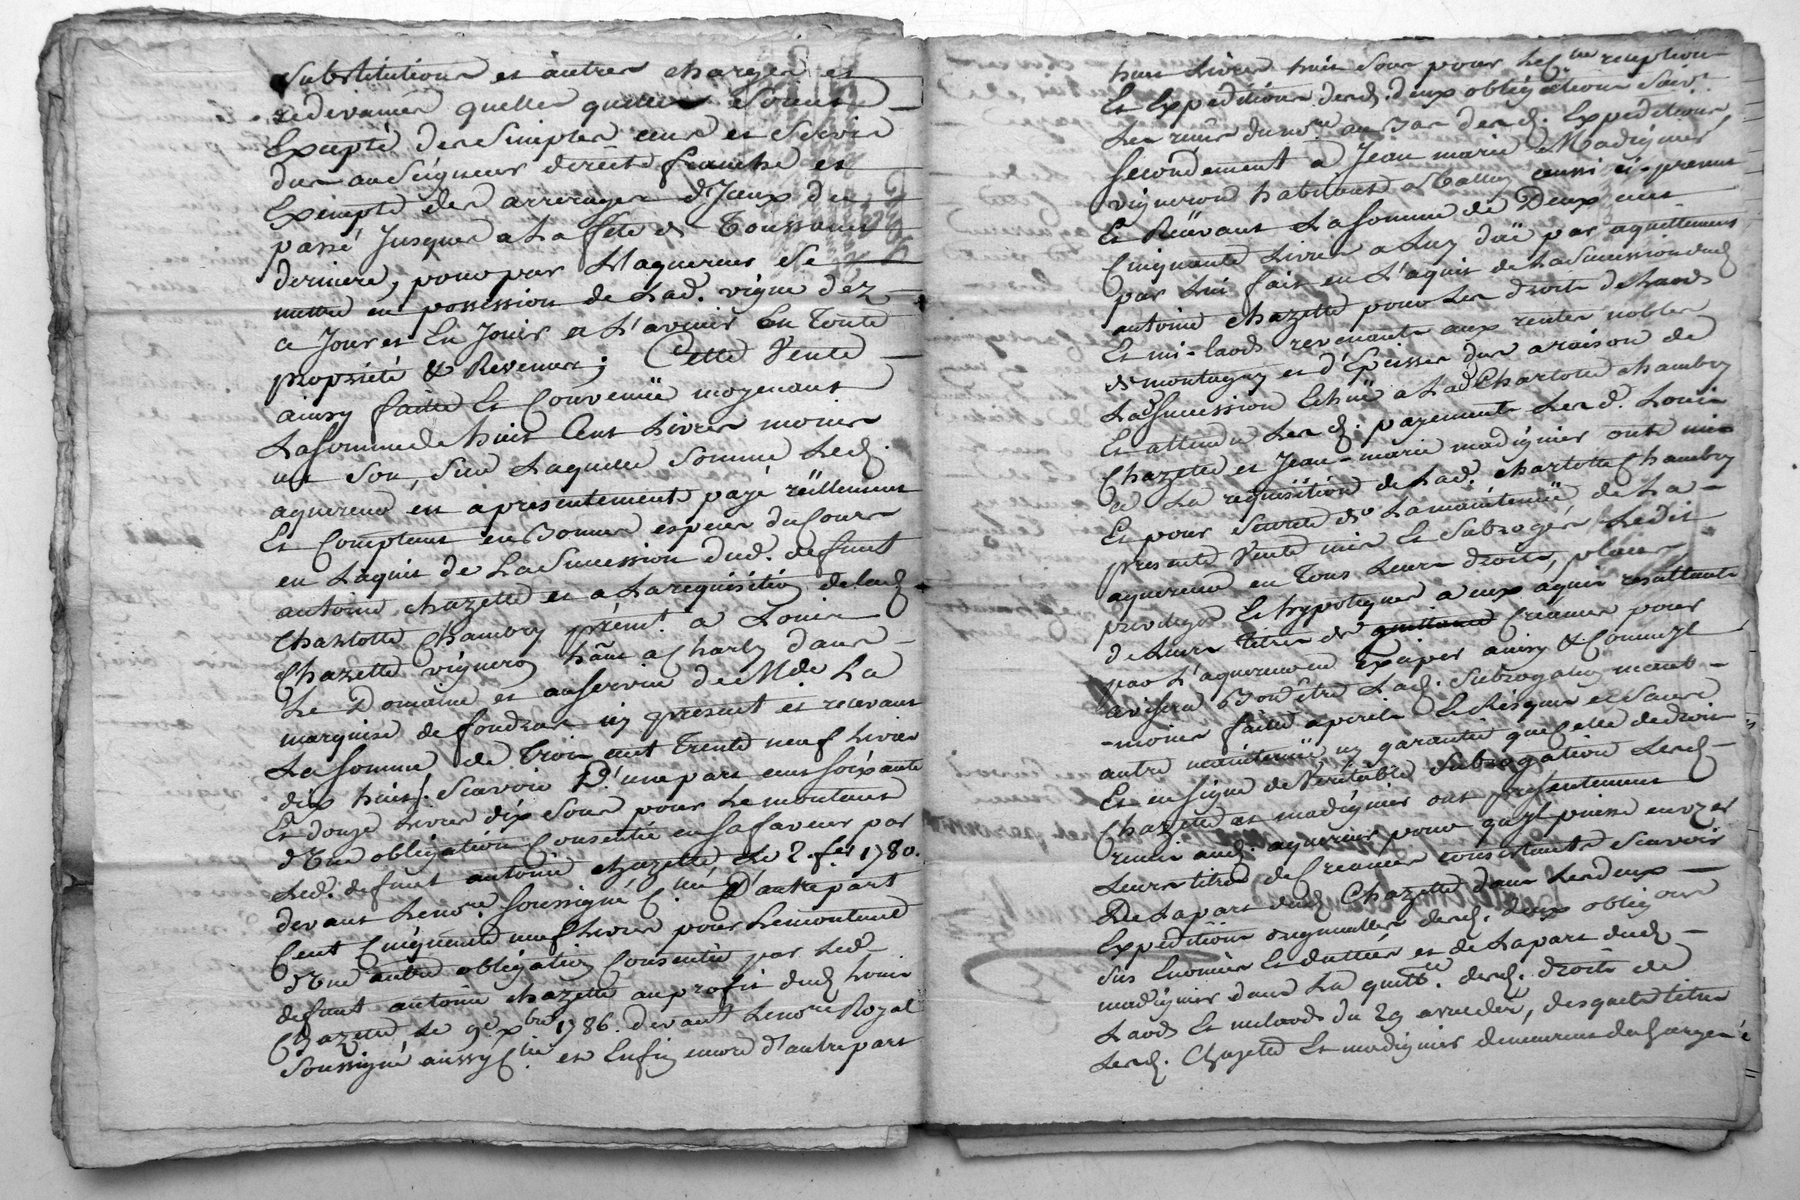 Substitutions et autres charges et
redevances quelles quelles soient
Excepté des simples cens et servis
dus au Seigneur directe franche et
Exempte des arrerages d'Jceux du
passé Jusques a La fête de Toussaint
derniere, pour par L'aquereur se
mettre en possession de Lad. vigne dez
a Jour et En Jouir a L'avenir En Toute
propriété & Revenus; Cette Vente
ainsy faitte Et Convenüe moyenant
La somme de huit Cent Livres moins
un Sou, Sur Laquelle somme Led.
aquereur en a presentement payé réellement
Et Comptant en Bonnes especes du Cours
en L'aquit de La Succession dud. defunt
antoine chazette et a La requisition de lad.
Charlotte Chambry présent. a Louis
Chazette vigneron hant a Charly dans
Le Domaine et au service de Mde La
marquise de fondras icy present et recevant
La somme de Trois cent Trente neuf Livres
dix huit s. Scavoir D'une part cent soixante
Et douze Livres dix Sous pour Le montant
d'Une obligation Consentie en sa faveur par
Led. defunt antoine chazette Le 2. fer 1780.
devant Le nore. soussigné C. D'autre part
Cent Cinquante neuf Livres pour Le montant
d'Une autre obligation Consentie par Led
defunt antoine chazette au profit dud Louis
Chazette Le 9e xbre 1786. devant Le nore Royal
Soussigné aussy C. et Enfin encore d'autre part
huit Livres huit Sous pour reception
Et Expeditions desd. deux obligations
Les reçus du nore. au Bas desd. Expeditions,
Secondement a Jean marie Madignier
vigneron habitant a aussi ci-present
Et Recevant La somme de Deux cent
Cinquante Livres a Luy düe par aquittement
par Lui fait en L'aquit de La Succession dud
antoine chazette pour Les droits de Laods
Et mi-laods revenants aux rentes nobles
de montagny et d'Epeisses dus a raison de
Lad Succession Echüe a Lad Charlotte chambry
Et attendu Lesd. payements Lesd. Louis
Chazette et Jean-marie madignier ont mis
a La requisition de Lad. charlotte Chambry
Et pour Seureté de La maintenüe de La
presente Vente mis Et Subrogés Ledit
aquereur en Tous Leurs droits, places
privileges Et hypoteques a eux aquis resultants
de Leurs Titres de quittance Creances pour
par L'aquereur en exciper ainsy & Comme Jl
avisera Bon être Lad. Subrogation neant-
-moins faitte a perils Et Risques et sans
autre maintenüe ny garantie que celle de droit
Et en signe de Veritable subrogation Lesd.
Chazette et madignier ont presentement
remis aud. aquereur pour qu'Jl puisse en Uzer
Leurs titres de Creances consistants Scavoir
De La part dud. Chazette dans Les deux
Expeditions originalles desd. deux obligons
Sus Enoncées Et dattées et de La part dud
madignier dans La quitt. desd. droits de
Laods Et milaods du 29 desquels titres
Lesd. Chazette Et madignier demeurent dechargés